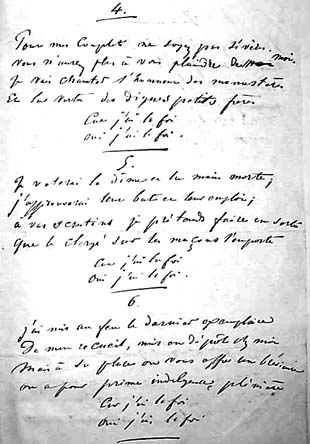 4.
Pour mes couplets ne soyez pas sévères
vous n'aurez plus à vous plaindre de moi.
Je vais chanter l'honneur des monastères
Et les vertus des dignes petits frères
Car j'ai la foi
oui j'ai la foi.
5.
Je voterai la dîme et la main morte;
j'approuverai leur but et leur emploi;
à vos scrutins je prétends faire en sorte
que le clergé sur les maçons l'emporte
Car j'ai la foi
oui j'ai la foi.
6.
j'ai mis au feu le dernier exemplaire
De mon recueil, mis en dépôt chez moi
Mais à sa place on vous offre un bréviaire
on a pour prime indulgence plénière
Car j'ai la foi
oui j'ai la foi